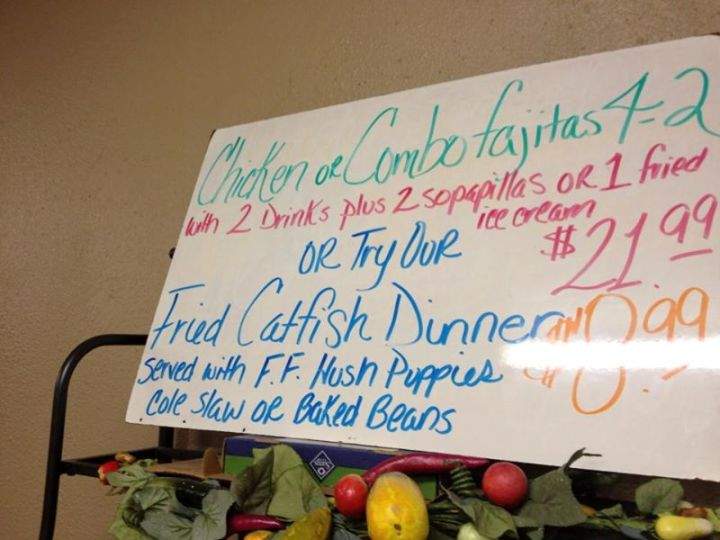 Chicken or Combo fajitas 4-2
with 2 Drinks plus 2 sopapillas or 1 fried
ice cream
$21.99
or Try Our
Fried Catfish Dinner
Served with F.F. Hush Puppies
Cole Slaw or Baked Beans